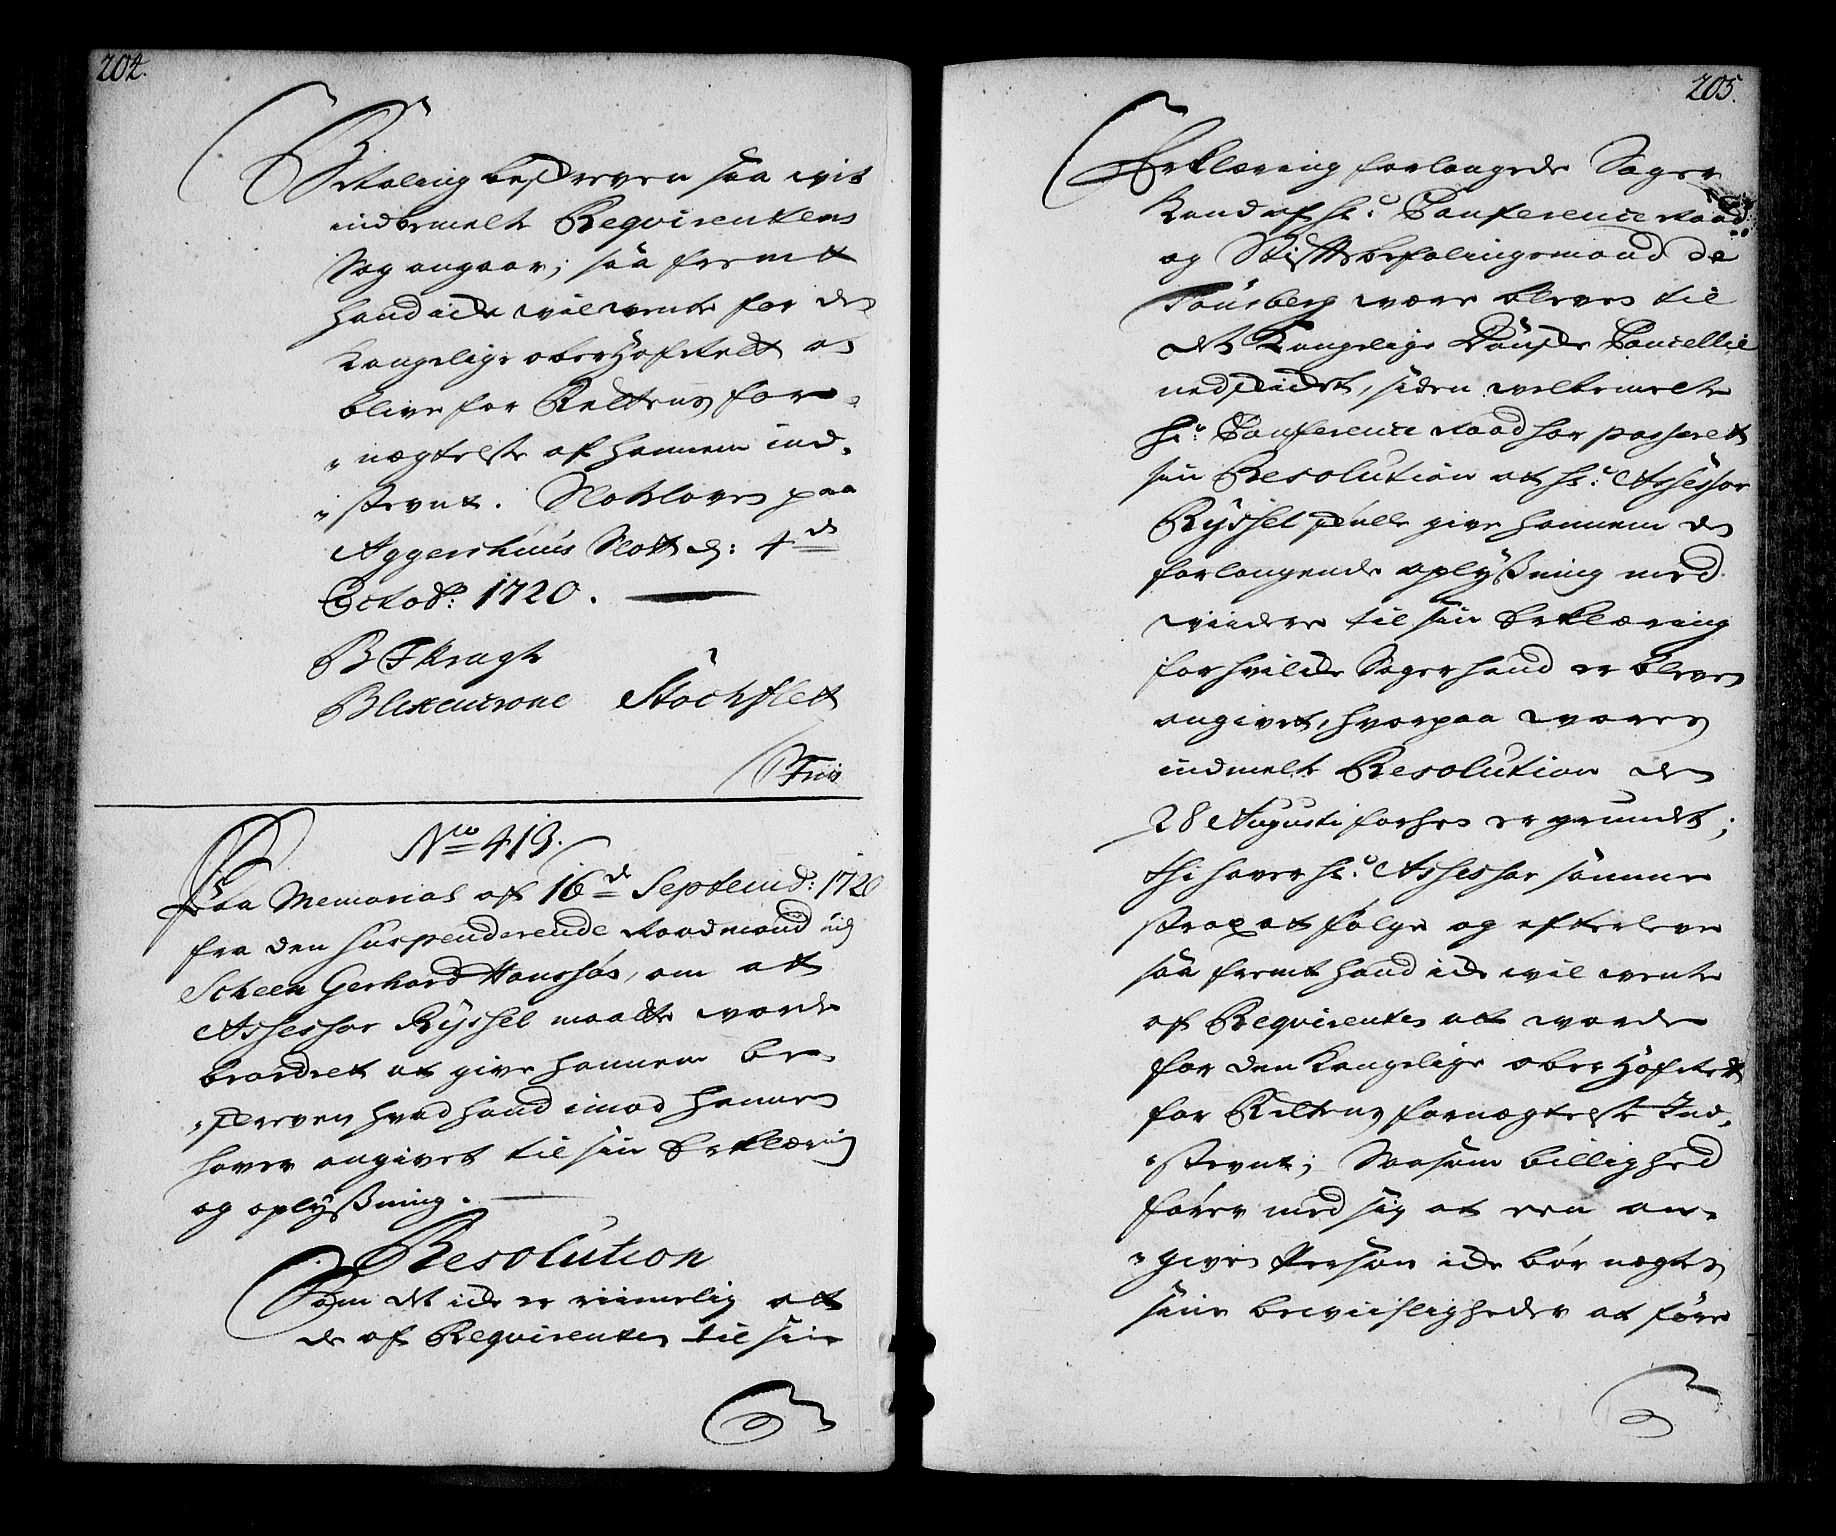 204.
Betaling beskreven saa vit
indbemelte Reqvirentens
Sag angaar; saa fremt
hand icke vil vente for det
Kongelige ober Hofrett at
blive for Rettens for-
nægtelse af hannem ind-
stevnt. Slotsloven paa
Aggershuus Slott d: 4de
Octobr: 1720.
B F Kragh
Blixencrone Stockflett
Friis
No 413.
Paa Memorial af 16de Septemb: 1720
fra den suspenderende Raadmand udj
Scheen Gerhard Hanssøn, om att
Assessor Ryssel maatte vorde
beordret at give hannem be-
skreven hvad hand imod hannem
haver angivet til sin Erklæring
og oplyßning.
Resolution
Som det icke er riimelig att
de af Reqvirenten til sin
205.
Erklæring forlangede Sager
Kand af Hr: Conference Raad
og Stiftbefalingsmand de
Tonsberg være bleven til
det Kongelige Danske Cancellie
nedskicket, siden velbemelte
Hr: Conference Raad har passeret
sin Resolution at Hr: Assessor
Ryssel skulle give hannem de
forlangende oplyßning med
viidere til sin Erklæring
for hvilcke Sager hand er bleven
angivet, hvorpaa vores
indmelte Resolution den
28 Augusti forhen er grundet;
thi haver Hr: Assessor samme
strax at følge og efterleve
saa fremt hand icke vil vente
af Reqvirenten att vorde
for den Kongelige ober Hofrett
for Rettens fornægtelse Ind-
stevnt; Saasom billighed
fører med sig at een an-
given Person icke bør nægtes
sine beviisligheder at føre